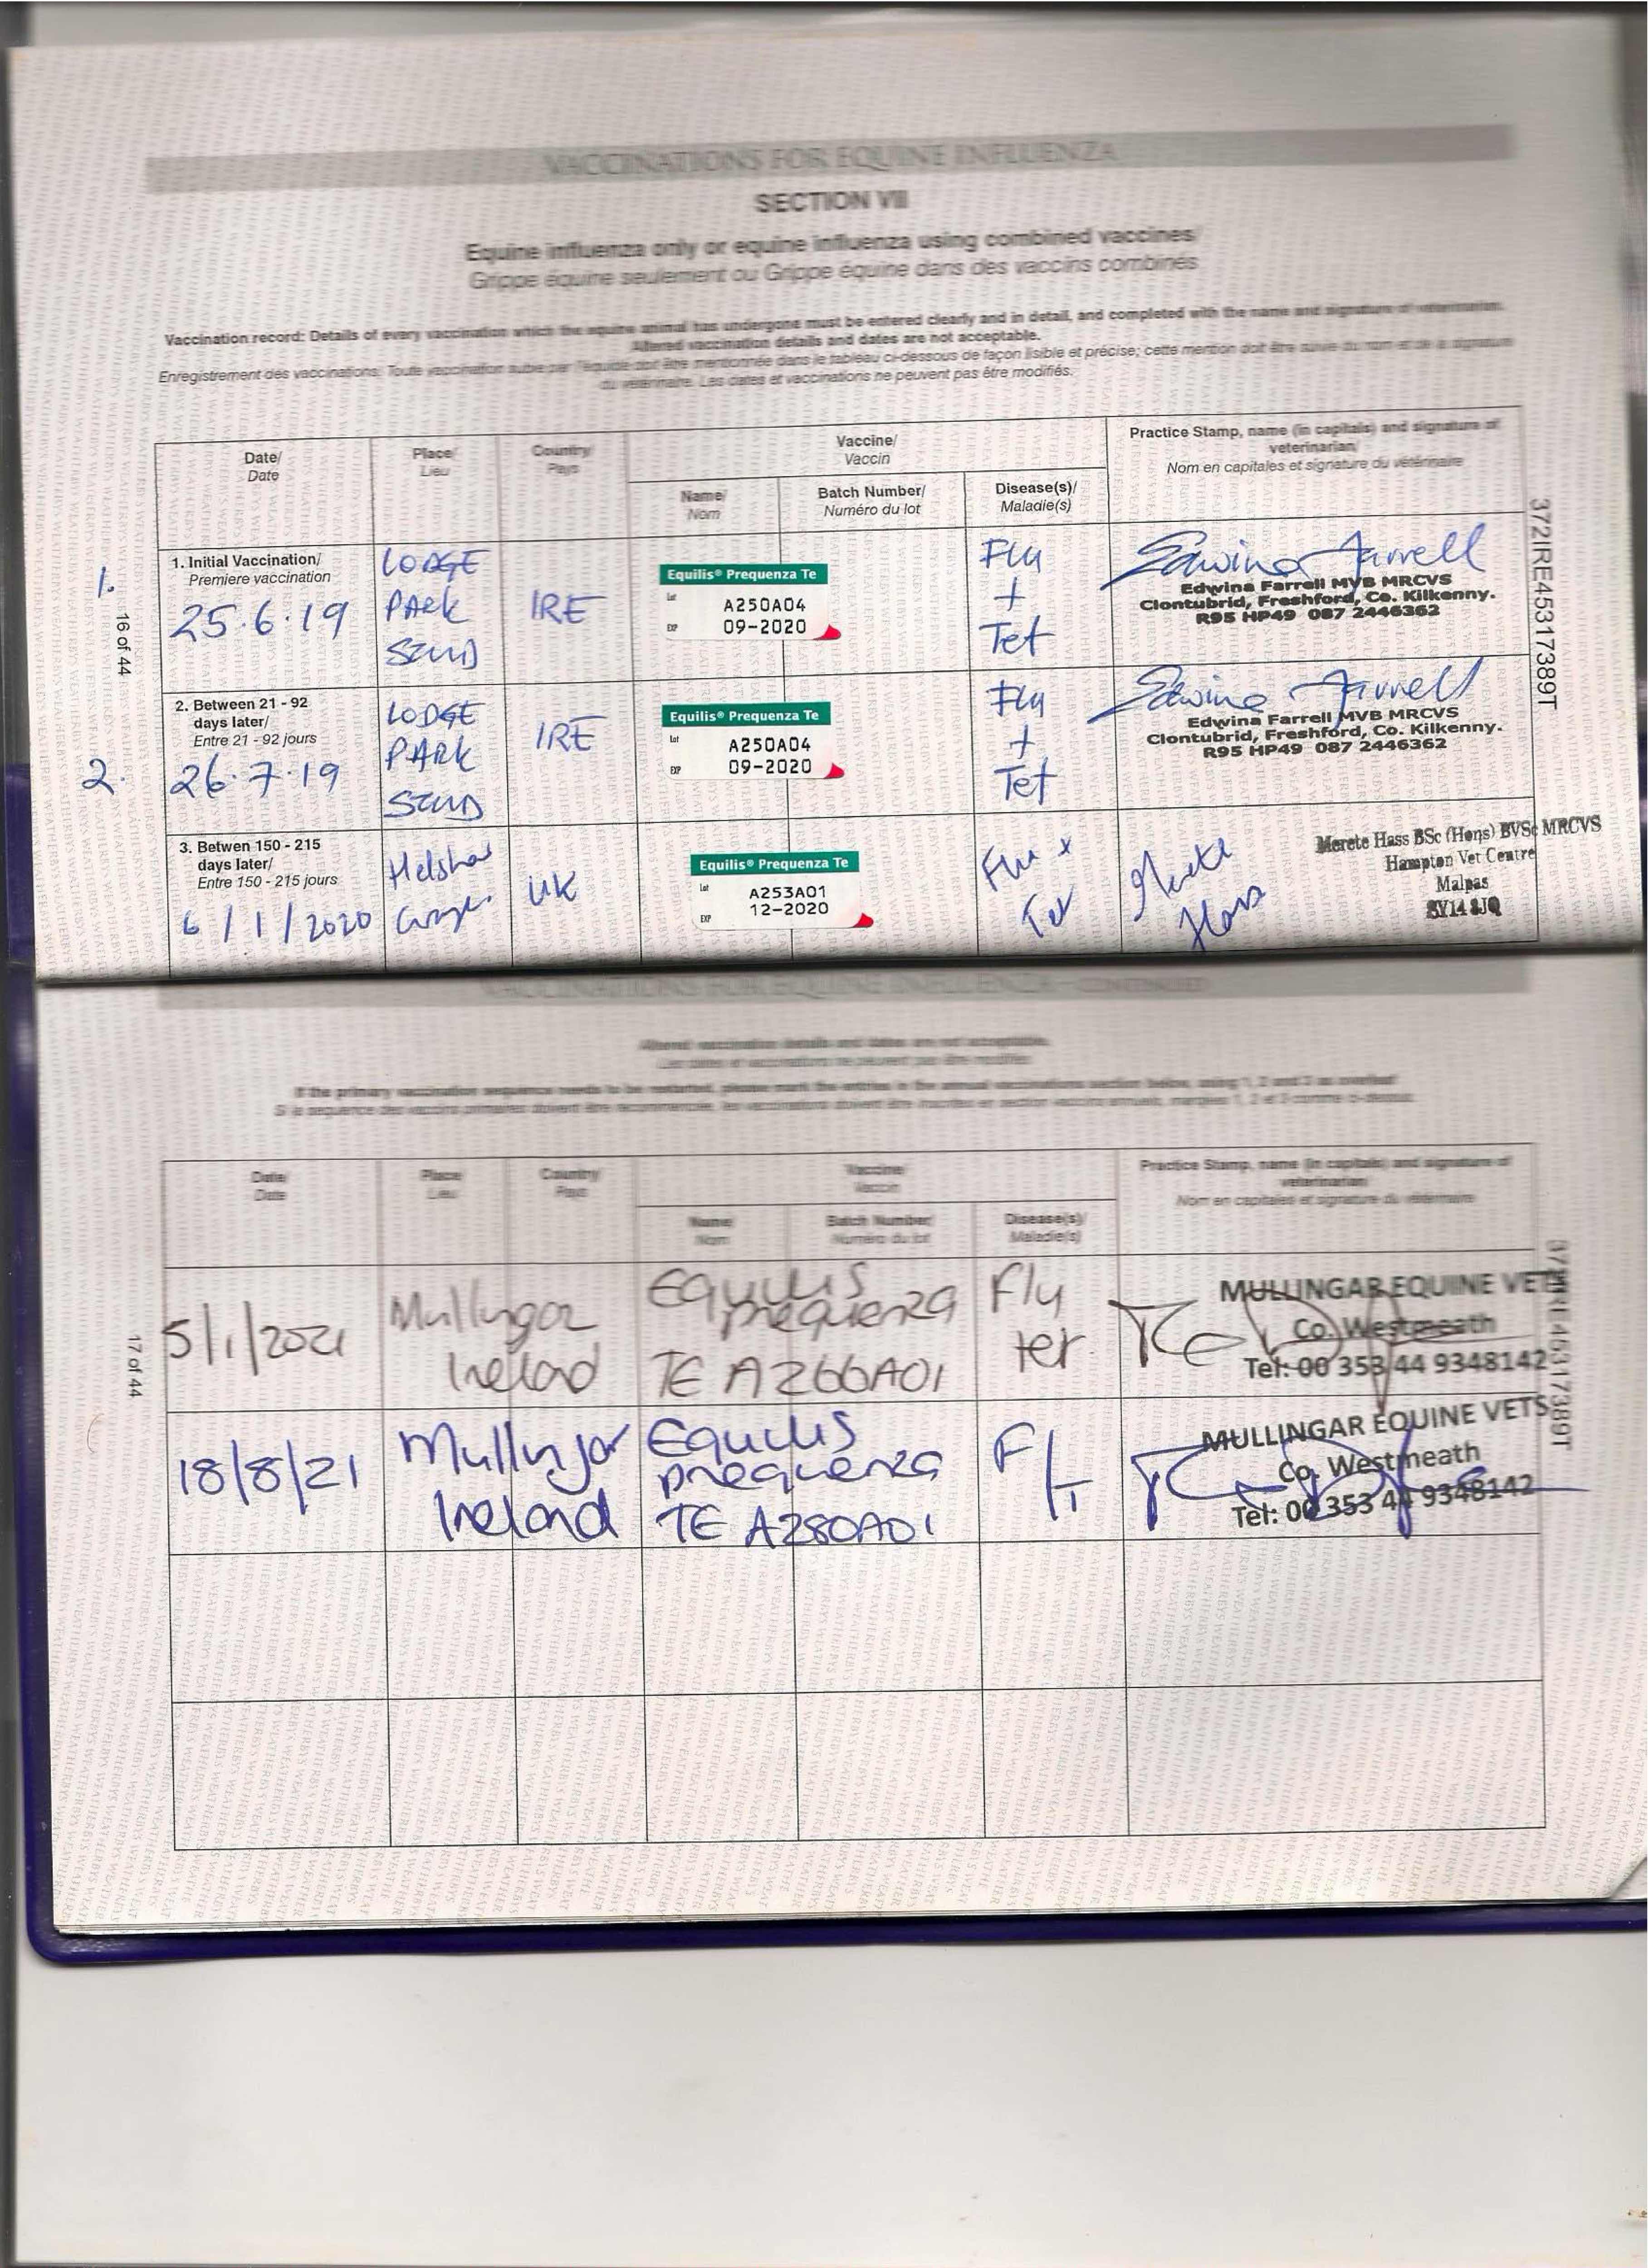 VACCINATIONS FOR EQUINE INFLUENZA
SECTION VII
Equine influenza only or equine influenza using combined vaccines/
Grippe équine seulement ou Grippe équine dans des vaccins combinés
Vaccination record: Details of every vaccination which the equine animal has undergone must be entered clearly and in detail, and completed with the name and signature of veterinarian.
Altered vaccination details and dates are not acceptable.
Enregistrement des vaccinations: Toute vaccination subie par l'équidé doit être mentionnée dans le tableau ci-dessous de façon lisible et précise; cette mention doit être suivie du nom et de la signature
du vétérinaire. Les dates et vaccinations ne peuvent pas être modifiés.
Date/ Place/ Country/ Vaccine/ Practice Stamp, name (in capitals) and signature of
Date Lieu Pays Vaccin veterinarian/
Nom en capitales et signature du vétérinaire
Name/ Batch Number/ Disease(s)/
Nom Numéro du lot Maladie(s)
1. Initial Vaccination/
Premiere vaccination
1.
25.6.19
LODGE
PARK
STUD
IRE
Equilis® Prequenza Te
Lot A250A04
EXP 09-2020
Flu
+
Tet
Edwina Farrell
Edwina Farrell MVB MRCVS
Clontubrid, Freshford, Co. Kilkenny.
R95 HP49 087 2446362
2. Between 21 - 92
days later/
Entre 21 - 92 jours
2.
26.7.19
LODGE
PARK
STUD
IRE
Equilis® Prequenza Te
Lot A250A04
EXP 09-2020
Flu
+
Tet
Edwina Farrell
Edwina Farrell MVB MRCVS
Clontubrid, Freshford, Co. Kilkenny.
R95 HP49 087 2446362
3. Betwen 150 - 215
days later/
Entre 150 - 215 jours
6/1/2020
UK
Equilis® Prequenza Te
Lot A253A01
EXP 12-2020
Flu +
Tet
Merete
Hass
Merete Hass BSc (Hons) BVSc MRCVS
Hampton Vet Centre
Malpas
SY14 8JQ
16 of 44
372IRE45317389T
VACCINATIONS FOR EQUINE INFLUENZA – CONTINUED
Altered vaccination details and dates are not acceptable.
Les dates et vaccinations ne peuvent pas être modifiés
If the primary vaccination sequence needs to be restarted, please mark the entries in the annual vaccinations section below, using 1, 2 and 3 as overleaf
Date/ Place/ Country/ Vaccine/ Practice Stamp, name (in capitals) and signature of
Date Lieu Pays Vaccin veterinarian/
Nom en capitales et signature du vétérinaire
Name/ Batch Number/ Disease(s)/
Nom Numéro du lot Maladie(s)
5/1/2021
Mullingar
Ireland
Equilis
prequenza
TE A266A01
Flu
tet.
MULLINGAR EQUINE VETS
Co. Westmeath
Tel: 00 353 44 9348142
18/8/21
Mullingar
Ireland
Equilis
prequenza
TE A280A01
F/T
MULLINGAR EQUINE VETS
Co. Westmeath
Tel: 00 353 44 9348142
17 of 44
372IRE45317389T